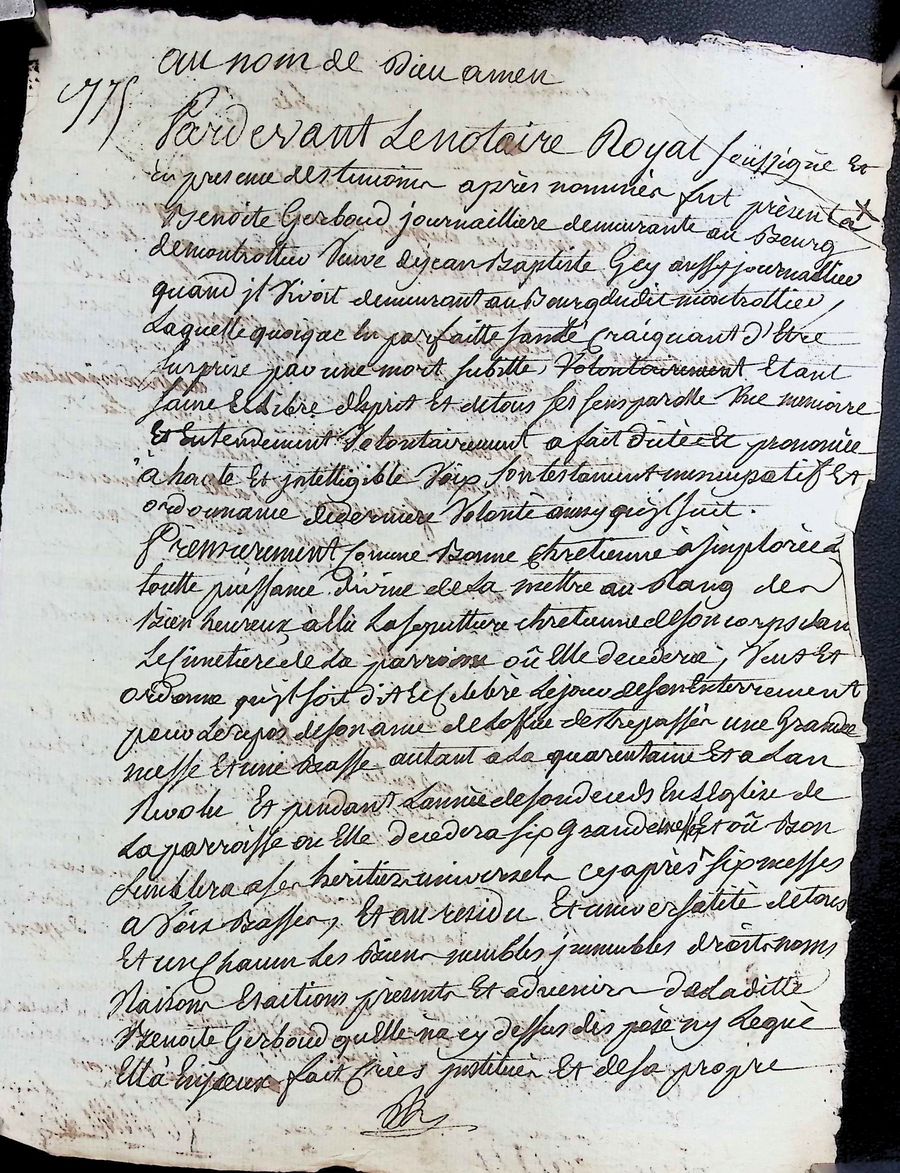 au nom de Dieu amen
1775
Pardevant Le notaire Royal soussigné Et
en presence des temoins après nommés fut présente
Benoite Gerboud journailliere demeurante au Bourg
de montrottier Veuve de jean Baptiste Gey aussy journaillier
quand jl Vivoit demeurant au Bourg dudit montrottier,
Laquelle quoique En parfaitte santé Craignant d'Etre
surprise par une mort subitte, Volontairement Etant
saine Et Libre d'Esprit Et de tous ses sens parolle Vue memoire
Et Entendement Volontairement a fait dicté Et prononcé
à haute Et jntelligible Voix son testament nuncupatif Et
ordonnance de derniere Volonté ainsy qu'jl suit.
Premierement Comme Bonne Chretienne à jmploré La
toutte puissance divine de La mettre au Rang des
Bien heureux a Elû La sepulture chretienne de son corps dans
Le Cimetiere de La parroisse oû Elle decedera, Veut Et
ordonne qu'jl soit dit Et Celebré Le jour de son Enterrement
pour Le repos de son ame de L'office des trepassés une Grande
messe Et une Basse autant a La quarentaine Et a L'an
Revolu Et pendant L'année de son deceds En L'Eglise de
La parroisse ou Elle decedera six Grandes messes Et oû Bon
semblera a ses héritiers universels cy après six messes
a Voix Basse, Et au residu Et universalité de tous
Et un Chacun Les Biens meubles jmmeubles droits noms
Raisons Et actions présents Et advenirs de Laditte
Benoite Gerboud qu'Elle n'a cy dessus disposé ny Legué
Ell'a En jceux fait Créés jnstitués Et de sa propre